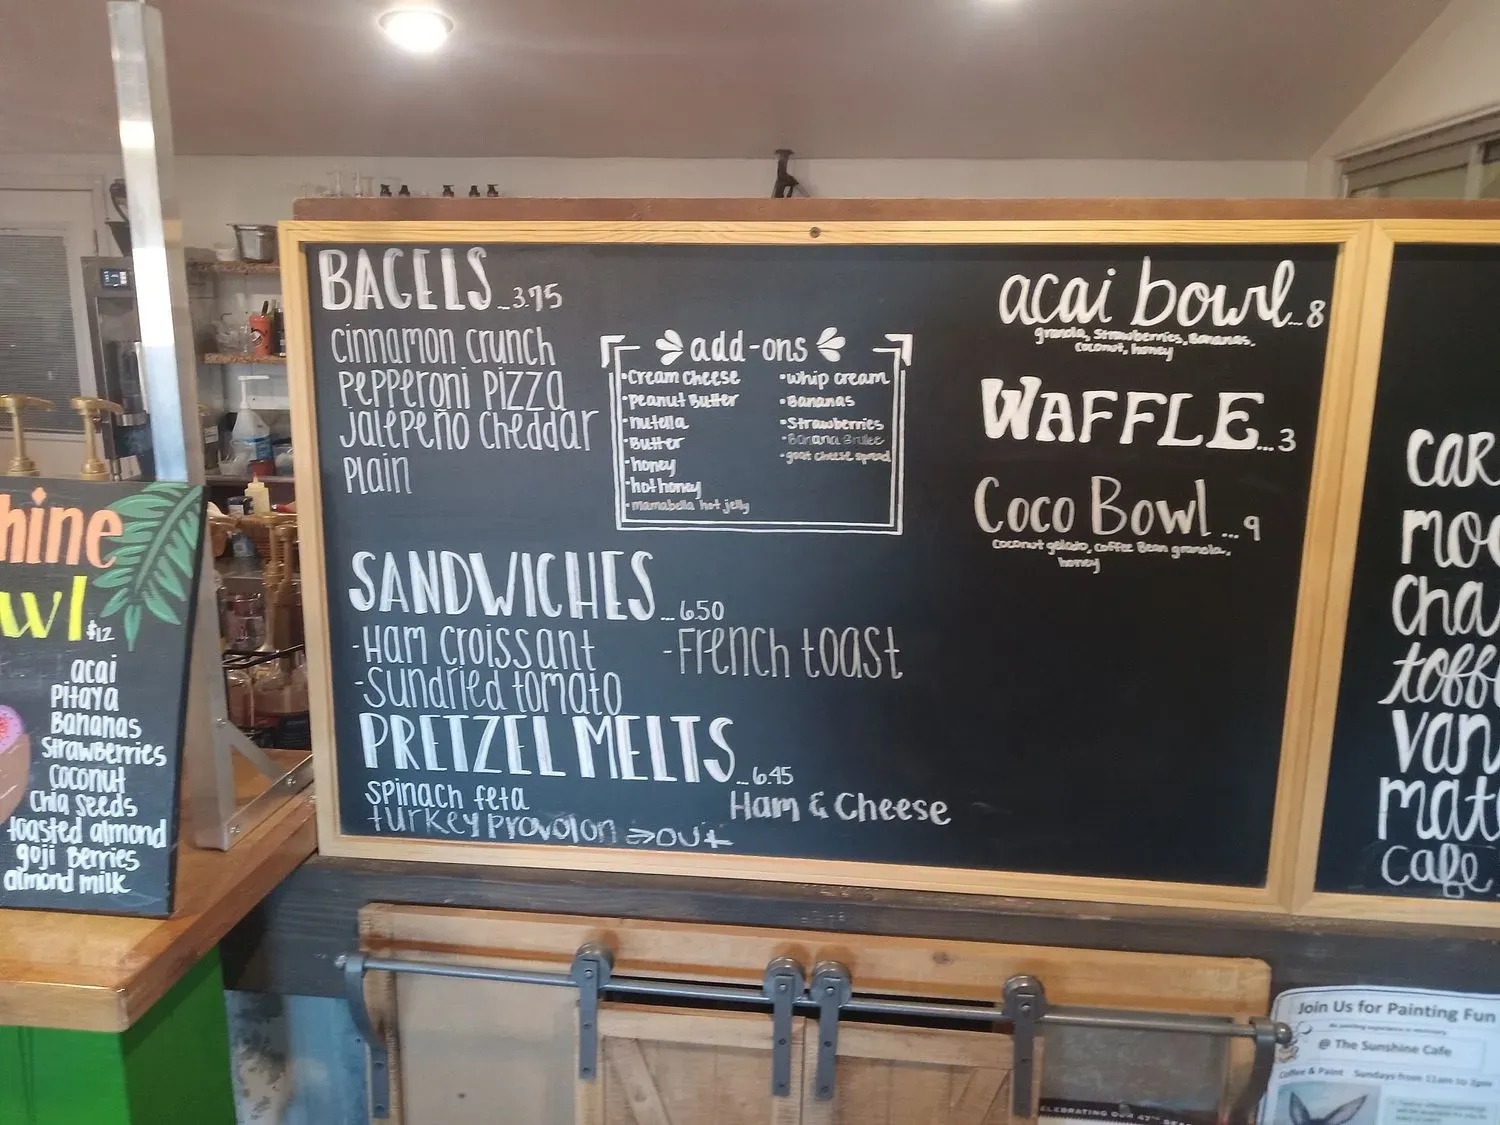 hine
wl $12
acai
Pitaya
Bananas
Strawberries
Coconut
Chia Seeds
toasted almond
goji Berries
almond milk
BAGELS...3.75
cinnamon crunch
pepperoni pizza
Jalepeño cheddar
Plain
add-ons
•Cream Cheese
•peanut Butter
•nutella
•Butter
•honey
•hot honey
•mamabella hot jelly
•whip cream
•Bananas
•Strawberries
•Banana Brulee
•goat cheese spread
SANDWICHES...6.50
-Ham croissant
-Sundried tomato
-French toast
PRETZEL MELTS...6.45
spinach feta
turkey provolon => out
Ham & Cheese
acai bowl...8
granola, Strawberries, Bananas,
coconut, honey
WAFFLE...3
Coco Bowl...9
coconut gelato, coffee Bean granola,
honey
car
moc
cha
toffe
van
mat
cafe
Join Us for Painting Fun
@ The Sunshine Cafe
Coffee & Paint Sundays from 11am to 2pm